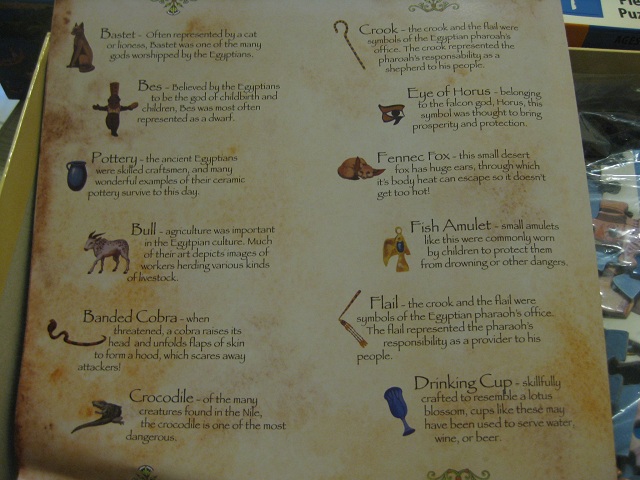 Bastet - Often represented by a cat
or lioness, Bastet was one of the many
gods worshipped by the Egyptians.
Bes - Believed by the Egyptians
to be the god of childbirth and
children, Bes was most often
represented as a dwarf.
Pottery - the ancient Egyptians
were skilled craftsmen, and many
wonderful examples of their ceramic
pottery survive to this day.
Bull - agriculture was important
in the Egytpian culture. Much
of their art depicts images of
workers herding various kinds
of livestock.
Banded Cobra - when
threatened, a cobra raises its
head and unfolds flaps of skin
to form a hood, which scares away
attackers!
Crocodile - of the many
creatures found in the Nile,
the crocodile is one of the most
dangerous.
Crook - the crook and the flail were
symbols of the Egyptian pharoah's
office. The crook represented the
pharoah's responsibility as a
shepherd to his people.
Eye of Horus - belonging
to the falcon god, Horus, this
symbol was thought to bring
prosperity and protection.
Fennec Fox - this small desert
fox has huge ears, through which
it's body heat can escape so it doesn't
get too hot!
Fish Amulet - small amulets
like this were commonly worn
by children to protect them
from drowning or other dangers.
Flail - the crook and the flail were
symbols of the Egyptian pharaoh's office.
The flail represented the pharaoh's
responsibility as a provider to his
people.
Drinking Cup - skillfully
crafted to resemble a lotus
blossom, cups like these may
have been used to serve water,
wine, or beer.
Puz